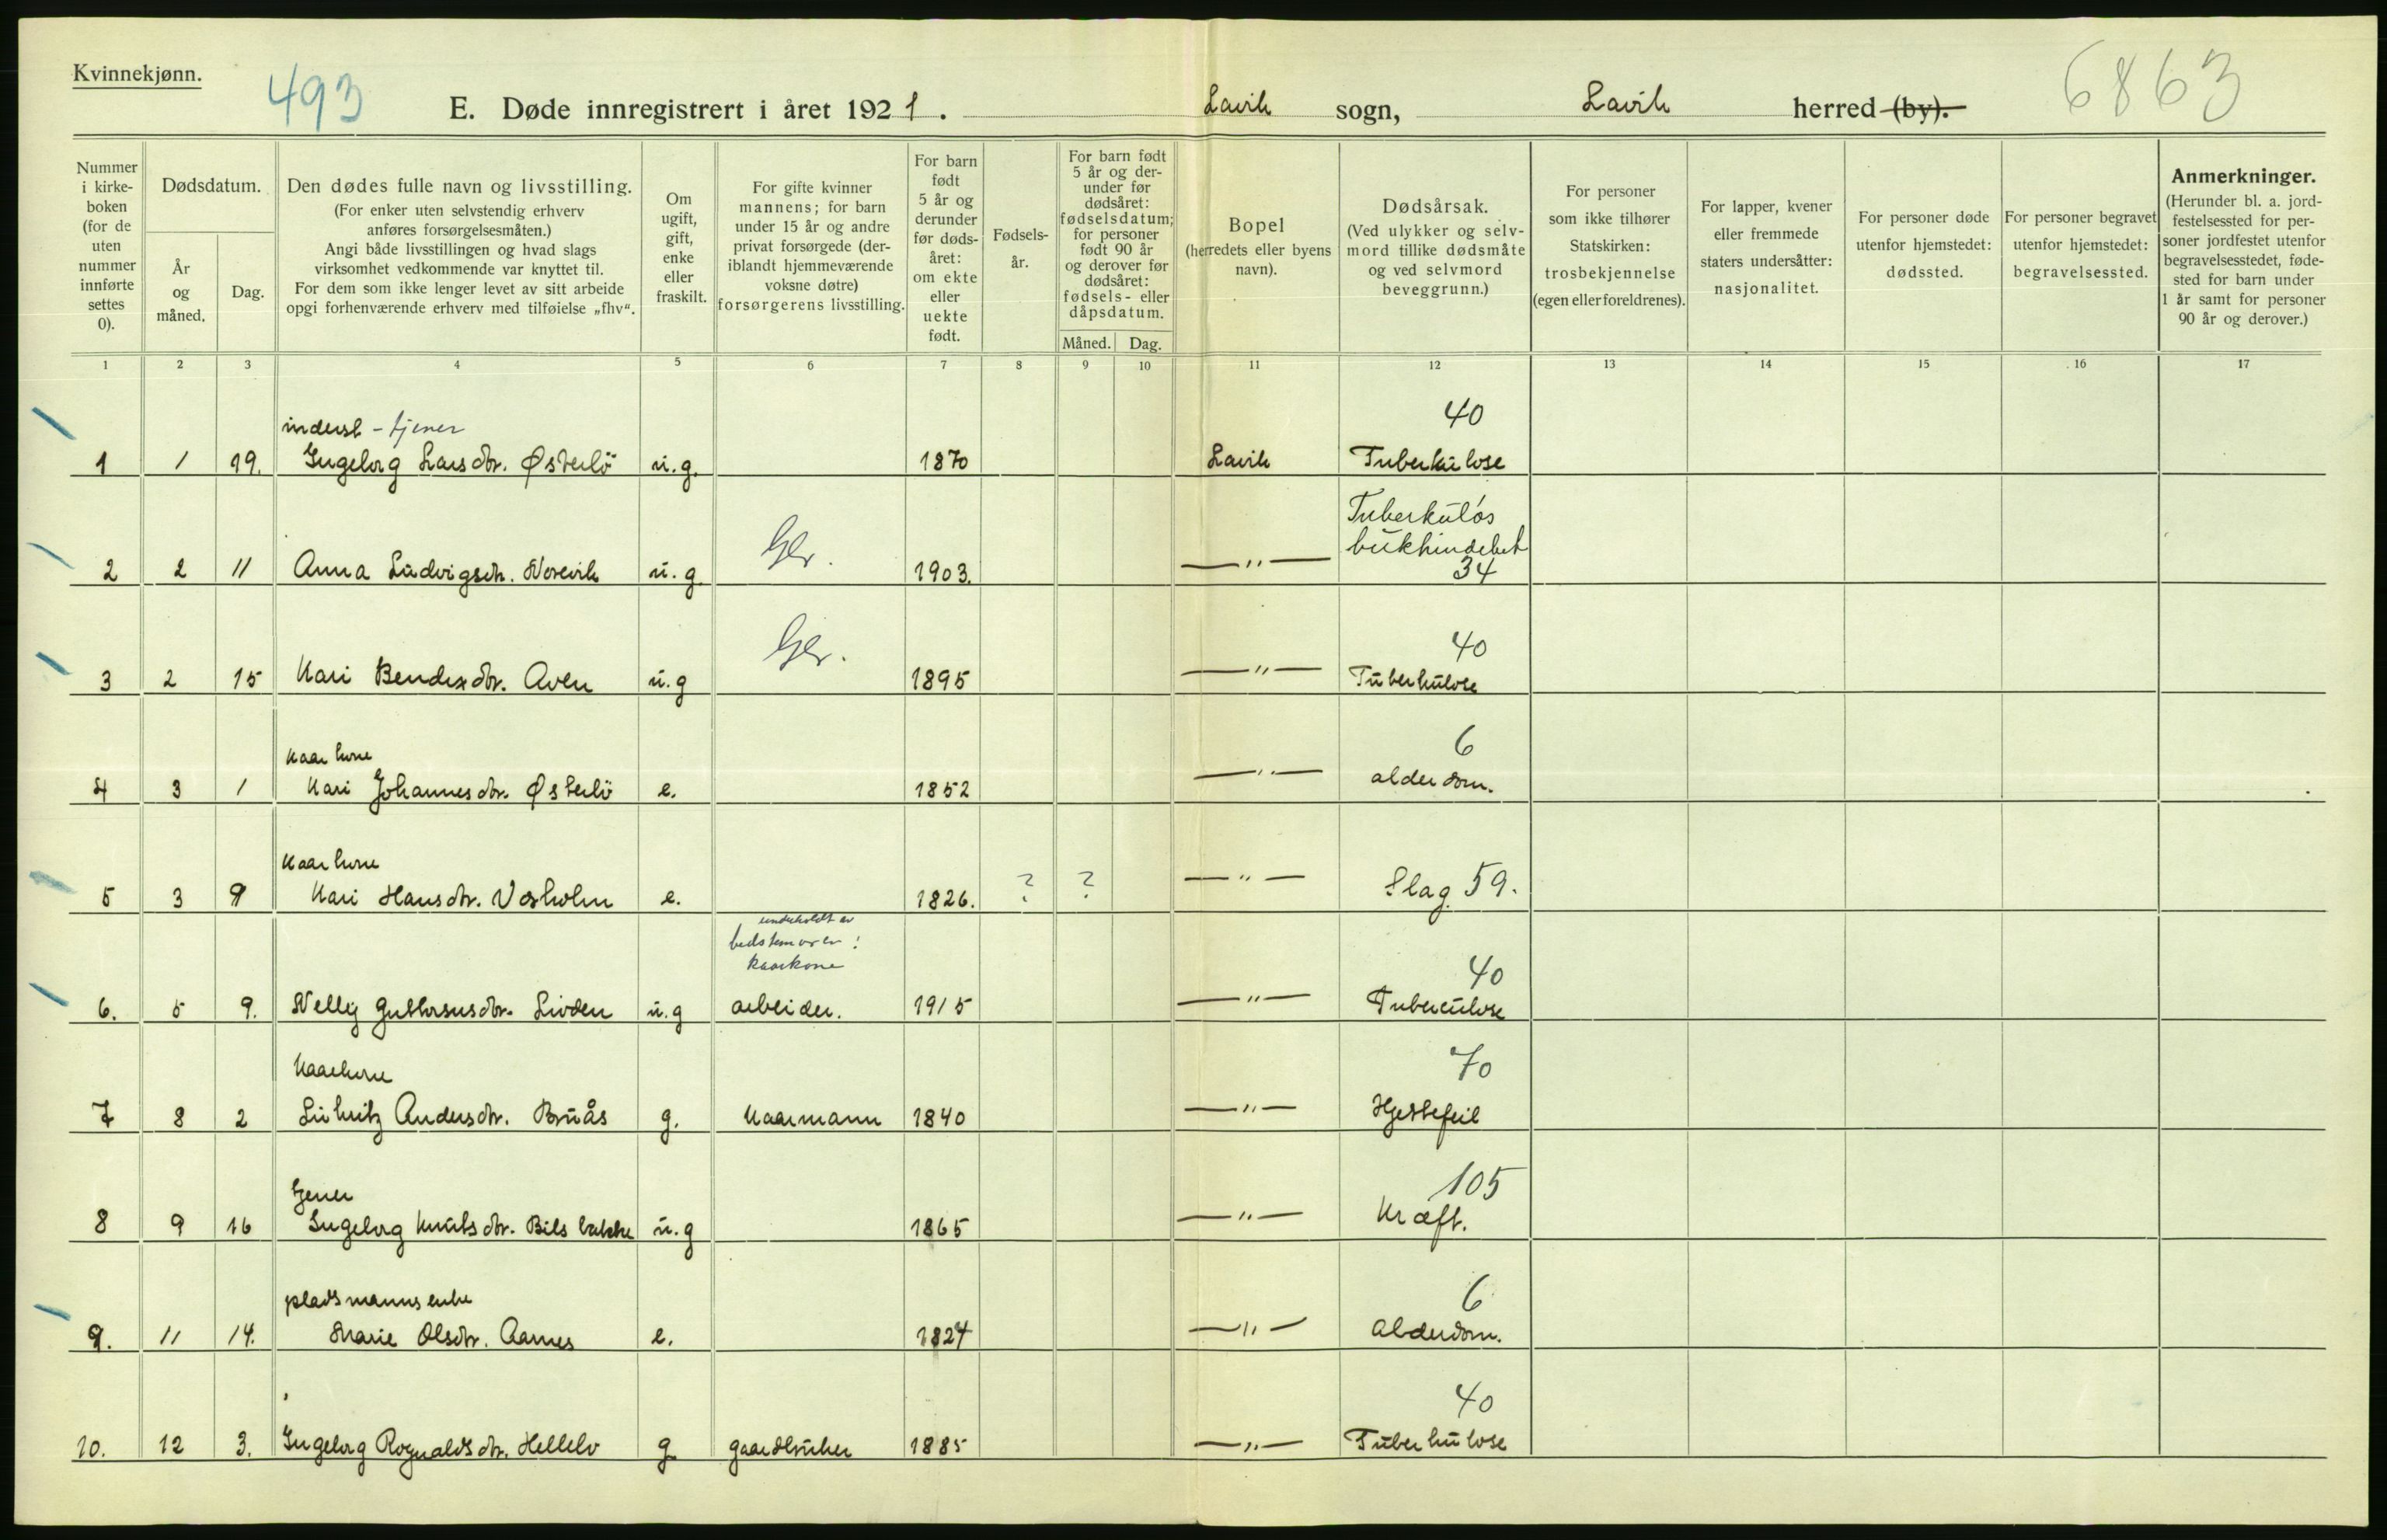 Kvinnekjønn.
493
E. Døde innregistrert i året 1921. Lavik sogn, Lavik herred (by).
6863
Nummer i kirkeboken (for de uten nummer innførte settes 0).
Dødsdatum.
År og måned.
Dag.
Den dødes fulle navn og livsstilling.
(For enker uten selvstendig erhverv anføres forsørgelsesmåten.)
Angi både livsstillingen og hvad slags virksomhet vedkommende var knyttet til.
For dem som ikke lenger levet av sitt arbeide opgi forhenværende erhverv med tilføielse „fhv“.
Om ugift, gift, enke eller fraskilt.
For gifte kvinner mannens; for barn under 15 år og andre privat forsørgede (deriblandt hjemmeværende voksne døtre) forsørgerens livsstilling.
For barn født 5 år og derunder før dødsåret: om ekte eller uekte født.
Fødselsår.
For barn født 5 år og derunder før dødsåret: fødselsdatum; for personer født 90 år og derover før dødsåret: fødsels- eller dåpsdatum.
Måned. Dag.
Bopel (herredets eller byens navn).
Dødsårsak.
(Ved ulykker og selvmord tillike dødsmåte og ved selvmord beveggrunn.)
For personer som ikke tilhører Statskirken: trosbekjennelse (egen eller foreldrenes).
For lapper, kvener eller fremmede staters undersåtter: nasjonalitet.
For personer døde utenfor hjemstedet: dødssted.
For personer begravet utenfor hjemstedet: begravelsessted.
Anmerkninger.
(Herunder bl. a. jordfestelsessted for personer jordfestet utenfor begravelsesstedet, fødested for barn under 1 år samt for personer 90 år og derover.)
1 2 3 4 5 6 7 8 9 10 11 12 13 14 15 16 17
inderst - tjener 40
1 1 19. Ingeborg Larsdtr. Østerbö u.g. 1870 Lavik Tuberkulose
Tuberkuløs
bukhindebet
2 2 11 Anna Ludvigsdtr. Norevik u.g. 1903. —"— 34
40
3 2 15 Kari Bendixdtr. Aven u.g 1895 —"— Tuberkulose
Kaarkone 6
4 3 1 Kari Johannesdtr. Østerbö e. 1852 —"— alderdom.
Kaarkone
5 3 9 Kari Hansdtr. Vesholm e. 1826. ? ? —"— Slag. 59.
underholdt av
bedstemoren:
kaarkone 40
6. 5 9. Nelly Gustavsdtr. Livden u.g arbeider. 1915 —"— Tuberculose
Kaarkone 70
7 8 2 Andersdtr. Bruås g. Kaarmann 1840 —"— Hjertefeil
tjener 105
8 9 16 Ingeborg Knutsdtr. Bilsbakke u.g 1865 —"— Kræft.
pladsmannsenke 6
9. 11 14. Marie Olsdtr. Aarnes e. 1824 —"— Alderdom.
40
10. 12 3. Ingeborg Rognaldsdtr. Hellebö g gaardbruker 1885 —"— Tuberkulose